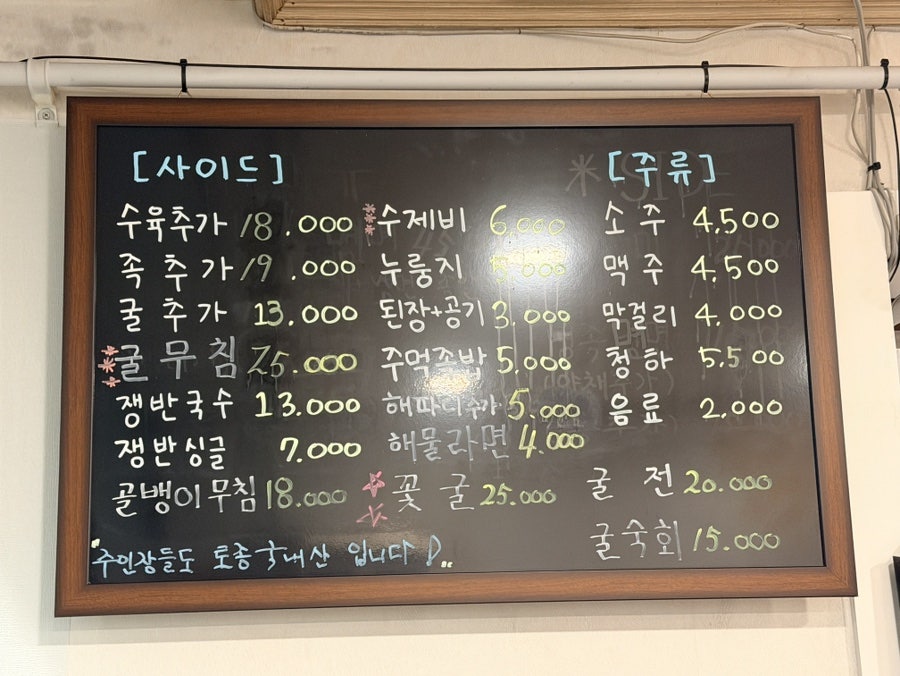 [사이드]
수육추가 18.000
족추가 19.000
굴추가 13.000
굴무침 25.000
쟁반국수 13.000
쟁반싱글 7.000
골뱅이무침 18.000
수제비 6,000
누룽지 000
된장+공기 3,000
주먹족밥 5,000
5,000
해물라면 4,000
꽃굴 25.000
[주류]
소주 4,500
맥주 4,500
막걸리 4,000
청하 5,500
음료 2,000
굴전 20.000
굴숙회 15.000
주인장들도 토종국내산 입니다